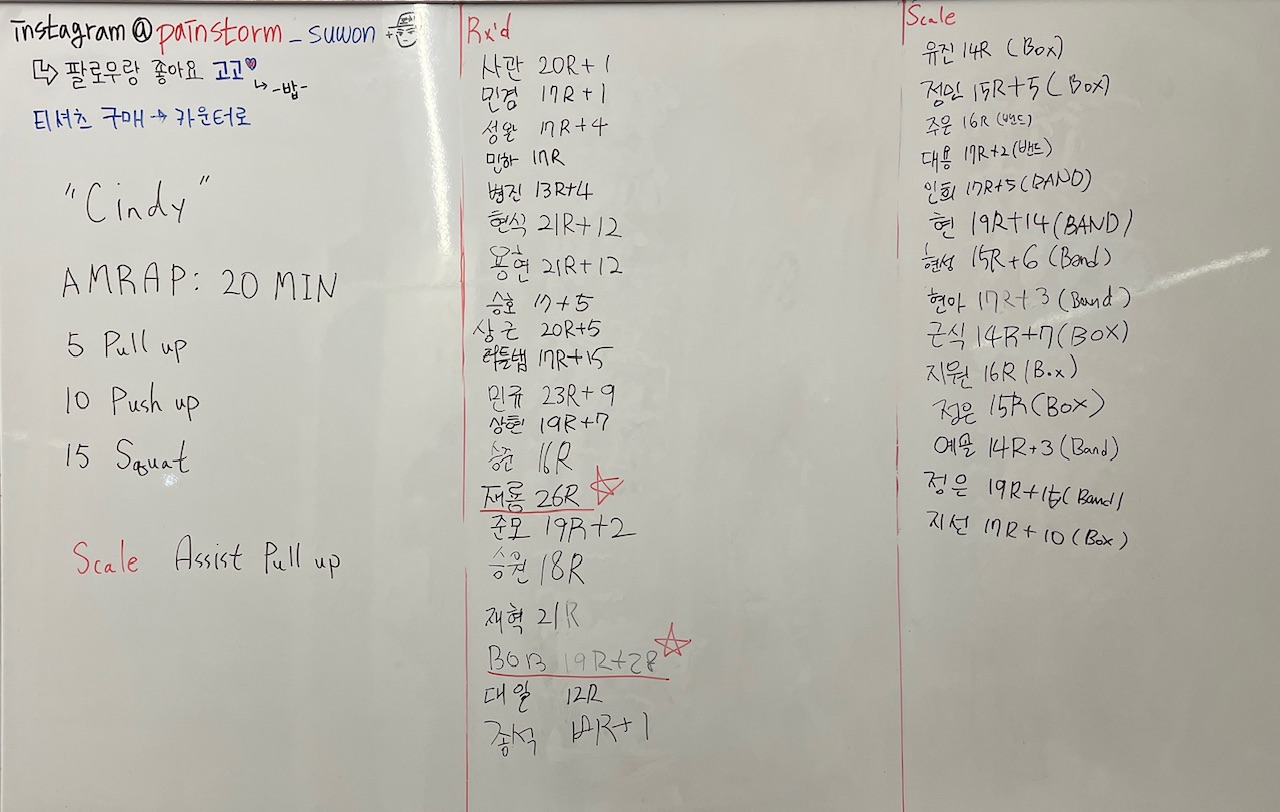 instagram@painstorm_suwon
팔로우랑 좋아요 고고
-밥-
티셔츠 구매→카운터로
"Cindy"
AMRAP: 20 MIN
5 Pull up
10 Push up
15 Squat
Scale Assist Pull up
Rx'd
사관 20R+1
민겸 17R+1
성완 17R+4
민하 17R
병진 13R+4
현식 21R+12
용현 21R+12
승호 17+5
상근 20R+5
17R+15
민규 23R+9
상현 19R+7
승준 16R
재룡 26R
준모 19R+2
승원 18R
재혁 21R
BOB 19R+28
대일 12R
종석 R+1
Scale
유진 14R (Box)
정인 15R+5 (Box)
주은 16R (밴드)
대용 17R+2 (밴드)
인희 17R+5 (BAND)
현 19R+14 (BAND)
현성 15R+6 (Band)
현아 17R+3 (Band)
근식 14R+7 (BOX)
지원 16R (Box)
정은 15R (Box)
예솔 14R+3 (Band)
정은 (Band)
지선 17R+10 (Box)